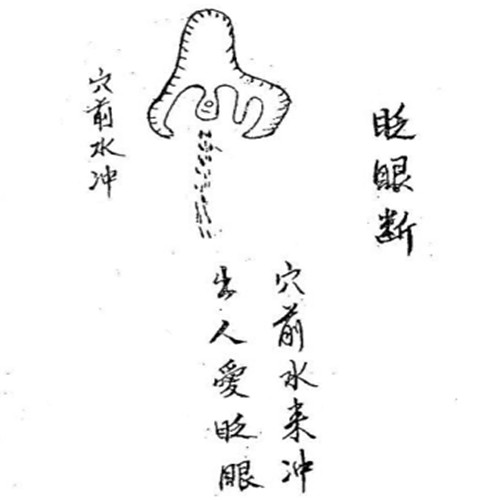 眨眼断
穴前水来冲
出人愛眨眼
穴前水冲